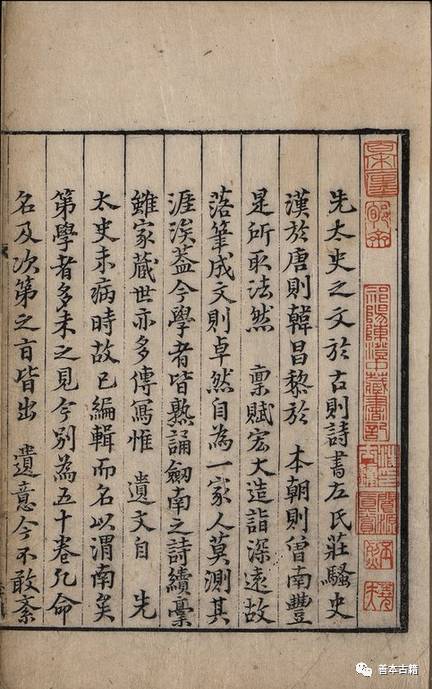 祁陽陳澄中藏書記
先太史之文於古則詩書左氏莊騷史
漢於唐則韓昌黎於 本朝則曾南豐
是所取法然 稟賦宏大造詣深遠故
落筆成文則卓然自為一家人莫測其
涯涘葢今學者皆熟誦劒南之詩續稾
雖家藏世亦多傳寫惟 遺文自 先
太史未病時故已編輯而名以渭南矣
第學者多未之見今別為五十卷凡命
名及次第之旨皆出 遺意今不敢紊
善本古籍